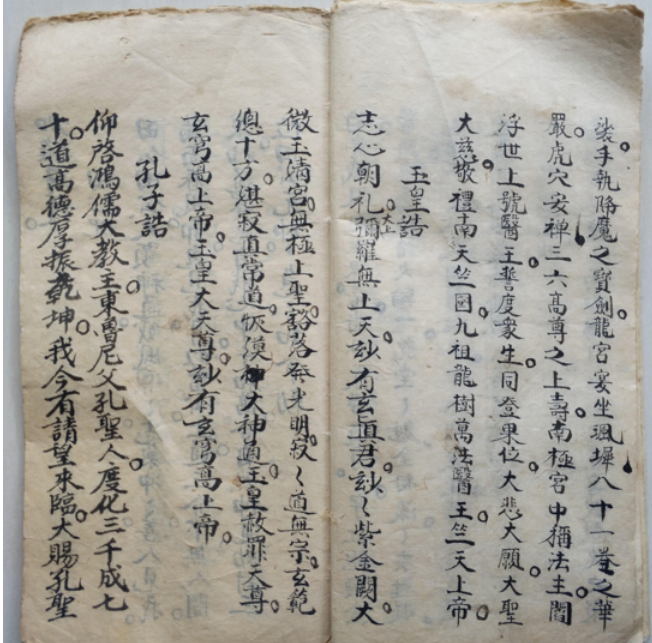 裟手執降魔之寶劍龍宮宴坐飊墀八十一卷之華
嚴虎穴安禪三六高尊之上壽南極宮中稱法主閻
浮世上號醫王誓度衆生同登果位大悲大願大聖
大慈敬禮南天竺國九祖龍樹萬法醫王竺天上帝
玉皇誥
志心朝礼彌羅無上天玅有玄真君玅々紫金闕太
微玉清宮無極上聖豁落發光明寂々道無宗玄範
總十方湛寂真常道恢漠神大神通玉皇赦罪天尊
玄穹高上帝玉皇大天尊玅有玄穹高上帝
孔子誥
仰啓鴻儒大教主東魯尼父孔聖人度化三千成七
十道高德厚振乾坤我今有請望來臨大賜孔聖